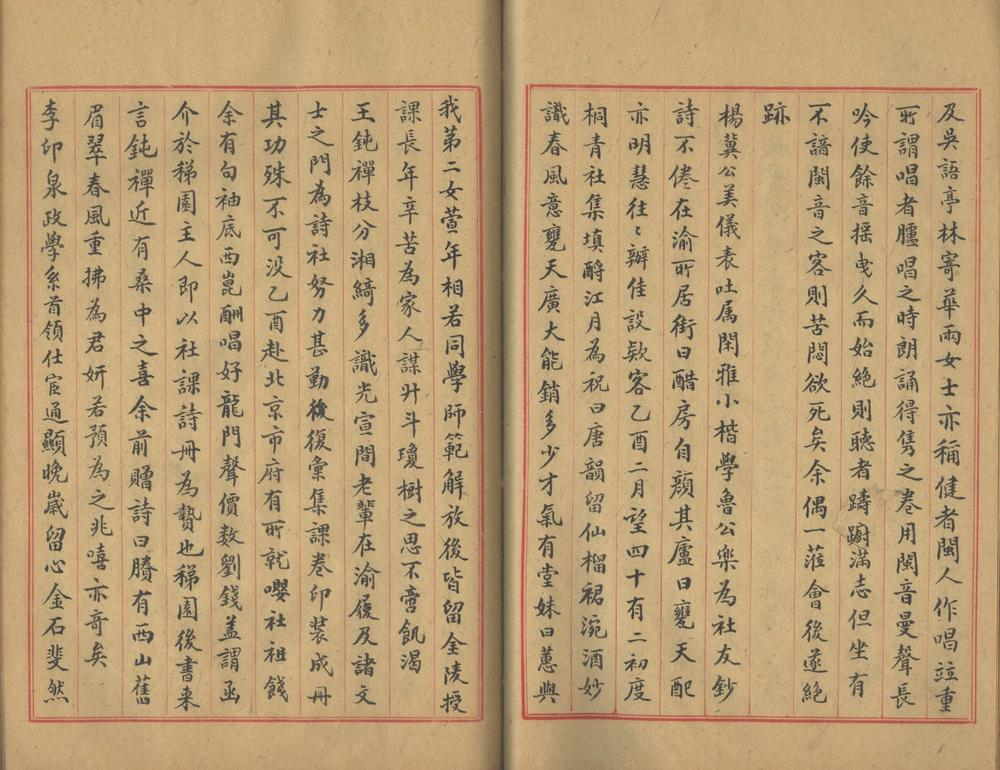 及吳語亭林寄華兩女士亦稱健者閩人作唱竝重
所謂唱者臚唱之時朗誦得雋之卷用閩音曼聲長
吟使餘音搖曳久而始絶則聽者躊躕滿志但坐有
不諳閩音之客則苦悶欲死矣余偶一蒞會後遂絶
跡
楊冀公美儀表吐属閑雅小楷學魯公樂為社友鈔
詩不倦在渝所居街曰醋房自顏其廬曰甕天配
亦明慧往〻辦佳設欵客乙酉二月望四十有二初度
桐青社集填酹江月為祝曰唐韻留仙榴裙涴酒妙
識春風意甕天廣大能銷多少才氣有堂妹曰蕙與
我第二女萱年相若同學師範解放後皆留金陵授
課長年辛苦為家人謀升斗瓊樹之思不啻飢渴
王鈍禪枝分湘綺多識光宣間老輩在渝履及諸文
士之門為詩社努力甚勤後復彙集課卷印裝成冊
其功殊不可没乙酉赴北京市府有所就嚶社祖餞
余有句袖底西崑酬唱好龍門聲價数劉錢盖謂函
介於稊園主人即以社課詩冊為贄也稊園後書来
言鈍禪近有桑中之喜余前贈詩曰賸有西山舊
眉翠春風重拂為君妍若預為之兆嘻亦奇矣
李印泉政學系首領仕宦通顯晚歲留心金石斐然